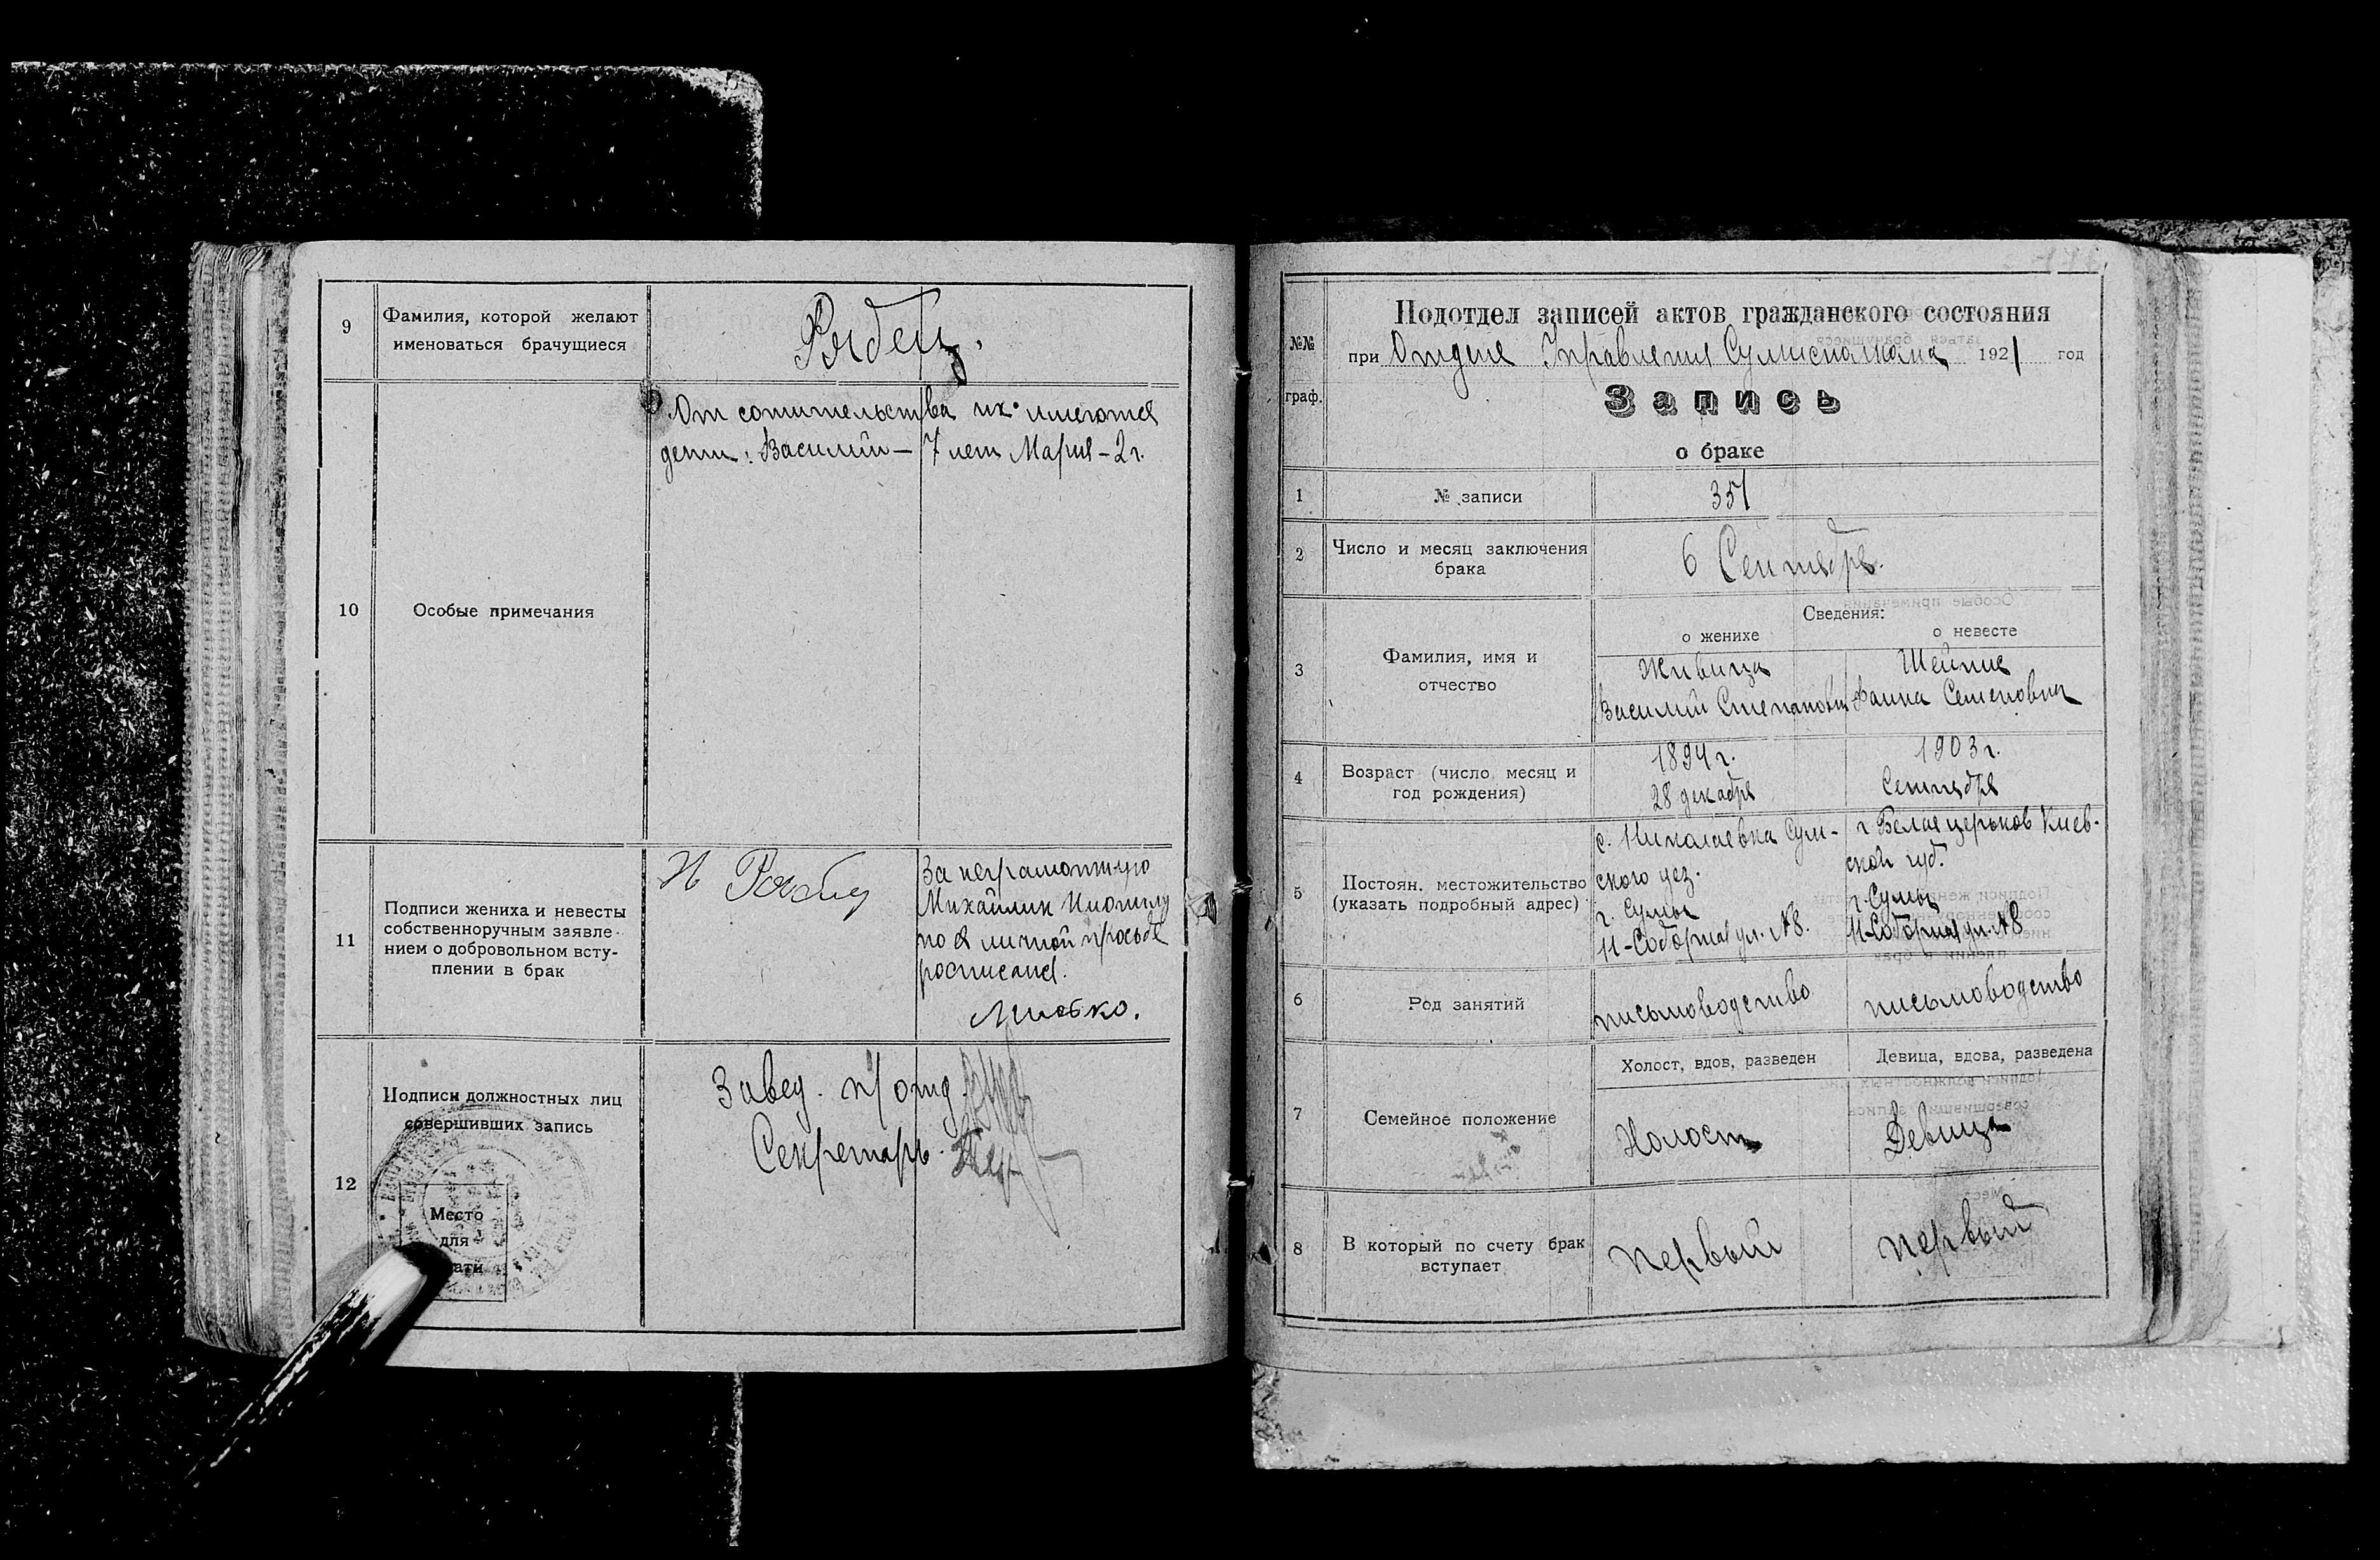 9
Фамилия, которой желают
именоваться брачущиеся
Рябец.
10
Особые примечания
От сожительства их имеются
дети: Василий – 7 лет Мария – 2 г.
11
Подписи жениха и невесты
собственноручным заявле-
нием о добровольном всту-
плении в брак
За неграмотную
Михайлик
по ея личной просьбе
росписался.
12
Подписи должностных лиц
совершивших запись
Место
для
ати
Завед. п/отд.
Секретарь
№№
граф.
Подотдел записей актов гражданского состояния
при Отделе Управления Сумисполкома 1921 год
Запись
о браке
1
№ записи
351
2
Число и месяц заключения
брака
6 Сентября.
Сведения:
о женихе
о невесте
3
Фамилия, имя и
отчество
Живица
Василий Степанович
Фаина Семеновна
4
Возраст (число месяц и
год рождения)
1894 г.
28 декабря
1903 г.
Сентября
5
Постоян. местожительство
(указать подробный адрес)
с. Николаевка Сум-
ского уез.
г. Сумы
11-Соборная ул. №8.
г. Белая церьков Киев-
ской губ.
г. Сумы
11-Соборная ул. №8
6
Род занятий
письмоводство
письмоводство
7
Семейное положение
Холост, вдов, разведен
Девица, вдова, разведена
Холост
Девица
8
В который по счету брак
вступает
первый
первый